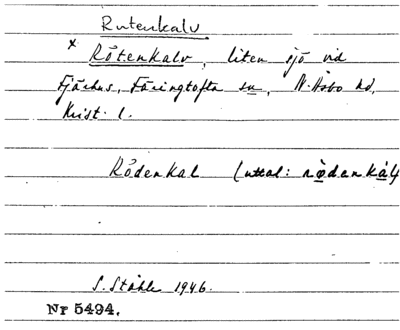 Rutenkalv
× Råtenkalv, liten sjö vid
Färingtofta sn, N. Åsbo hd,
Krist. l.
Rödenkal (uttal:
S. Ståhle 1946.
Nr 5494.